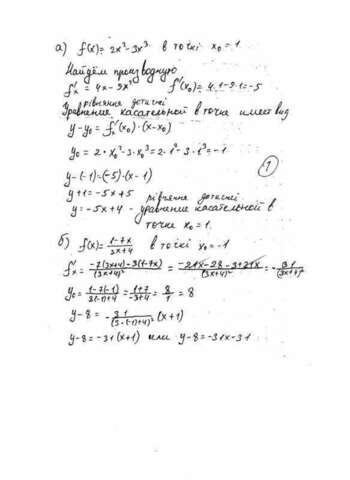 а) f(x) = 2x² - 3x³ в точкі x₀ = 1
Найдём производную
f'ₓ = 4x - 9x² f'(x₀) = 4·1 - 9·1 = -5
рівняння дотичної
Уравнение касательной в точке имеет вид
y - y₀ = f'ₓ(x₀)·(x - x₀)
y₀ = 2·x₀² - 3·x₀³ = 2·1² - 3·1³ = -1
y - (-1) = (-5)·(x - 1)
y + 1 = -5x + 5
рівняння дотичної
y = -5x + 4 - уравнение касательной в
точке x₀ = 1.
б) f(x) = (1-7x)/(3x+4) в точкі x₀ = -1
f'ₓ = (-7(3x+4) - 3(1-7x))/(3x+4)² = (-21x - 28 - 3 + 21x)/(3x+4)² = -31/(3x+4)²
y₀ = (1-7(-1))/(3(-1)+4) = (1+7)/(-3+4) = 8/1 = 8
y - 8 = -31/(3·(-1)+4)² (x+1)
y - 8 = -31(x+1) или y - 8 = -31x - 31